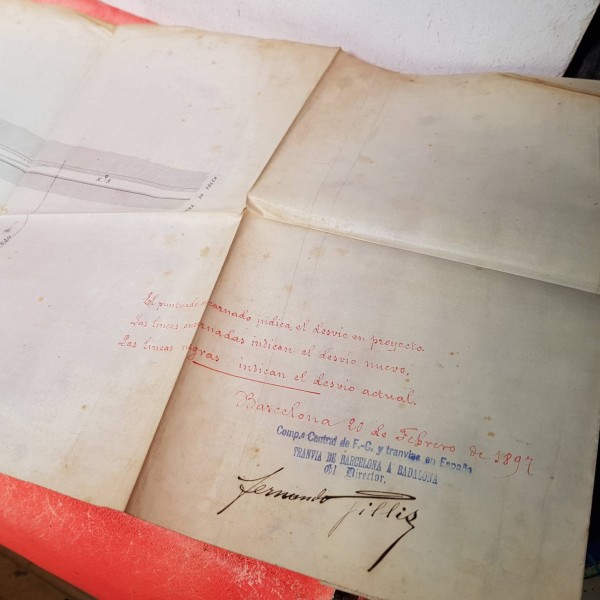 El punteado encarnado indica el desvío en proyecto.
Las líneas encarnadas indican el desvío nuevo.
Las líneas negras indican el desvío actual.
Barcelona 20 de Febrero de 1897
Comp.ª Central de F.-C. y tranvías en España
TRANVIA DE BARCELONA Á BADALONA
El Director,
Fernando Gillis